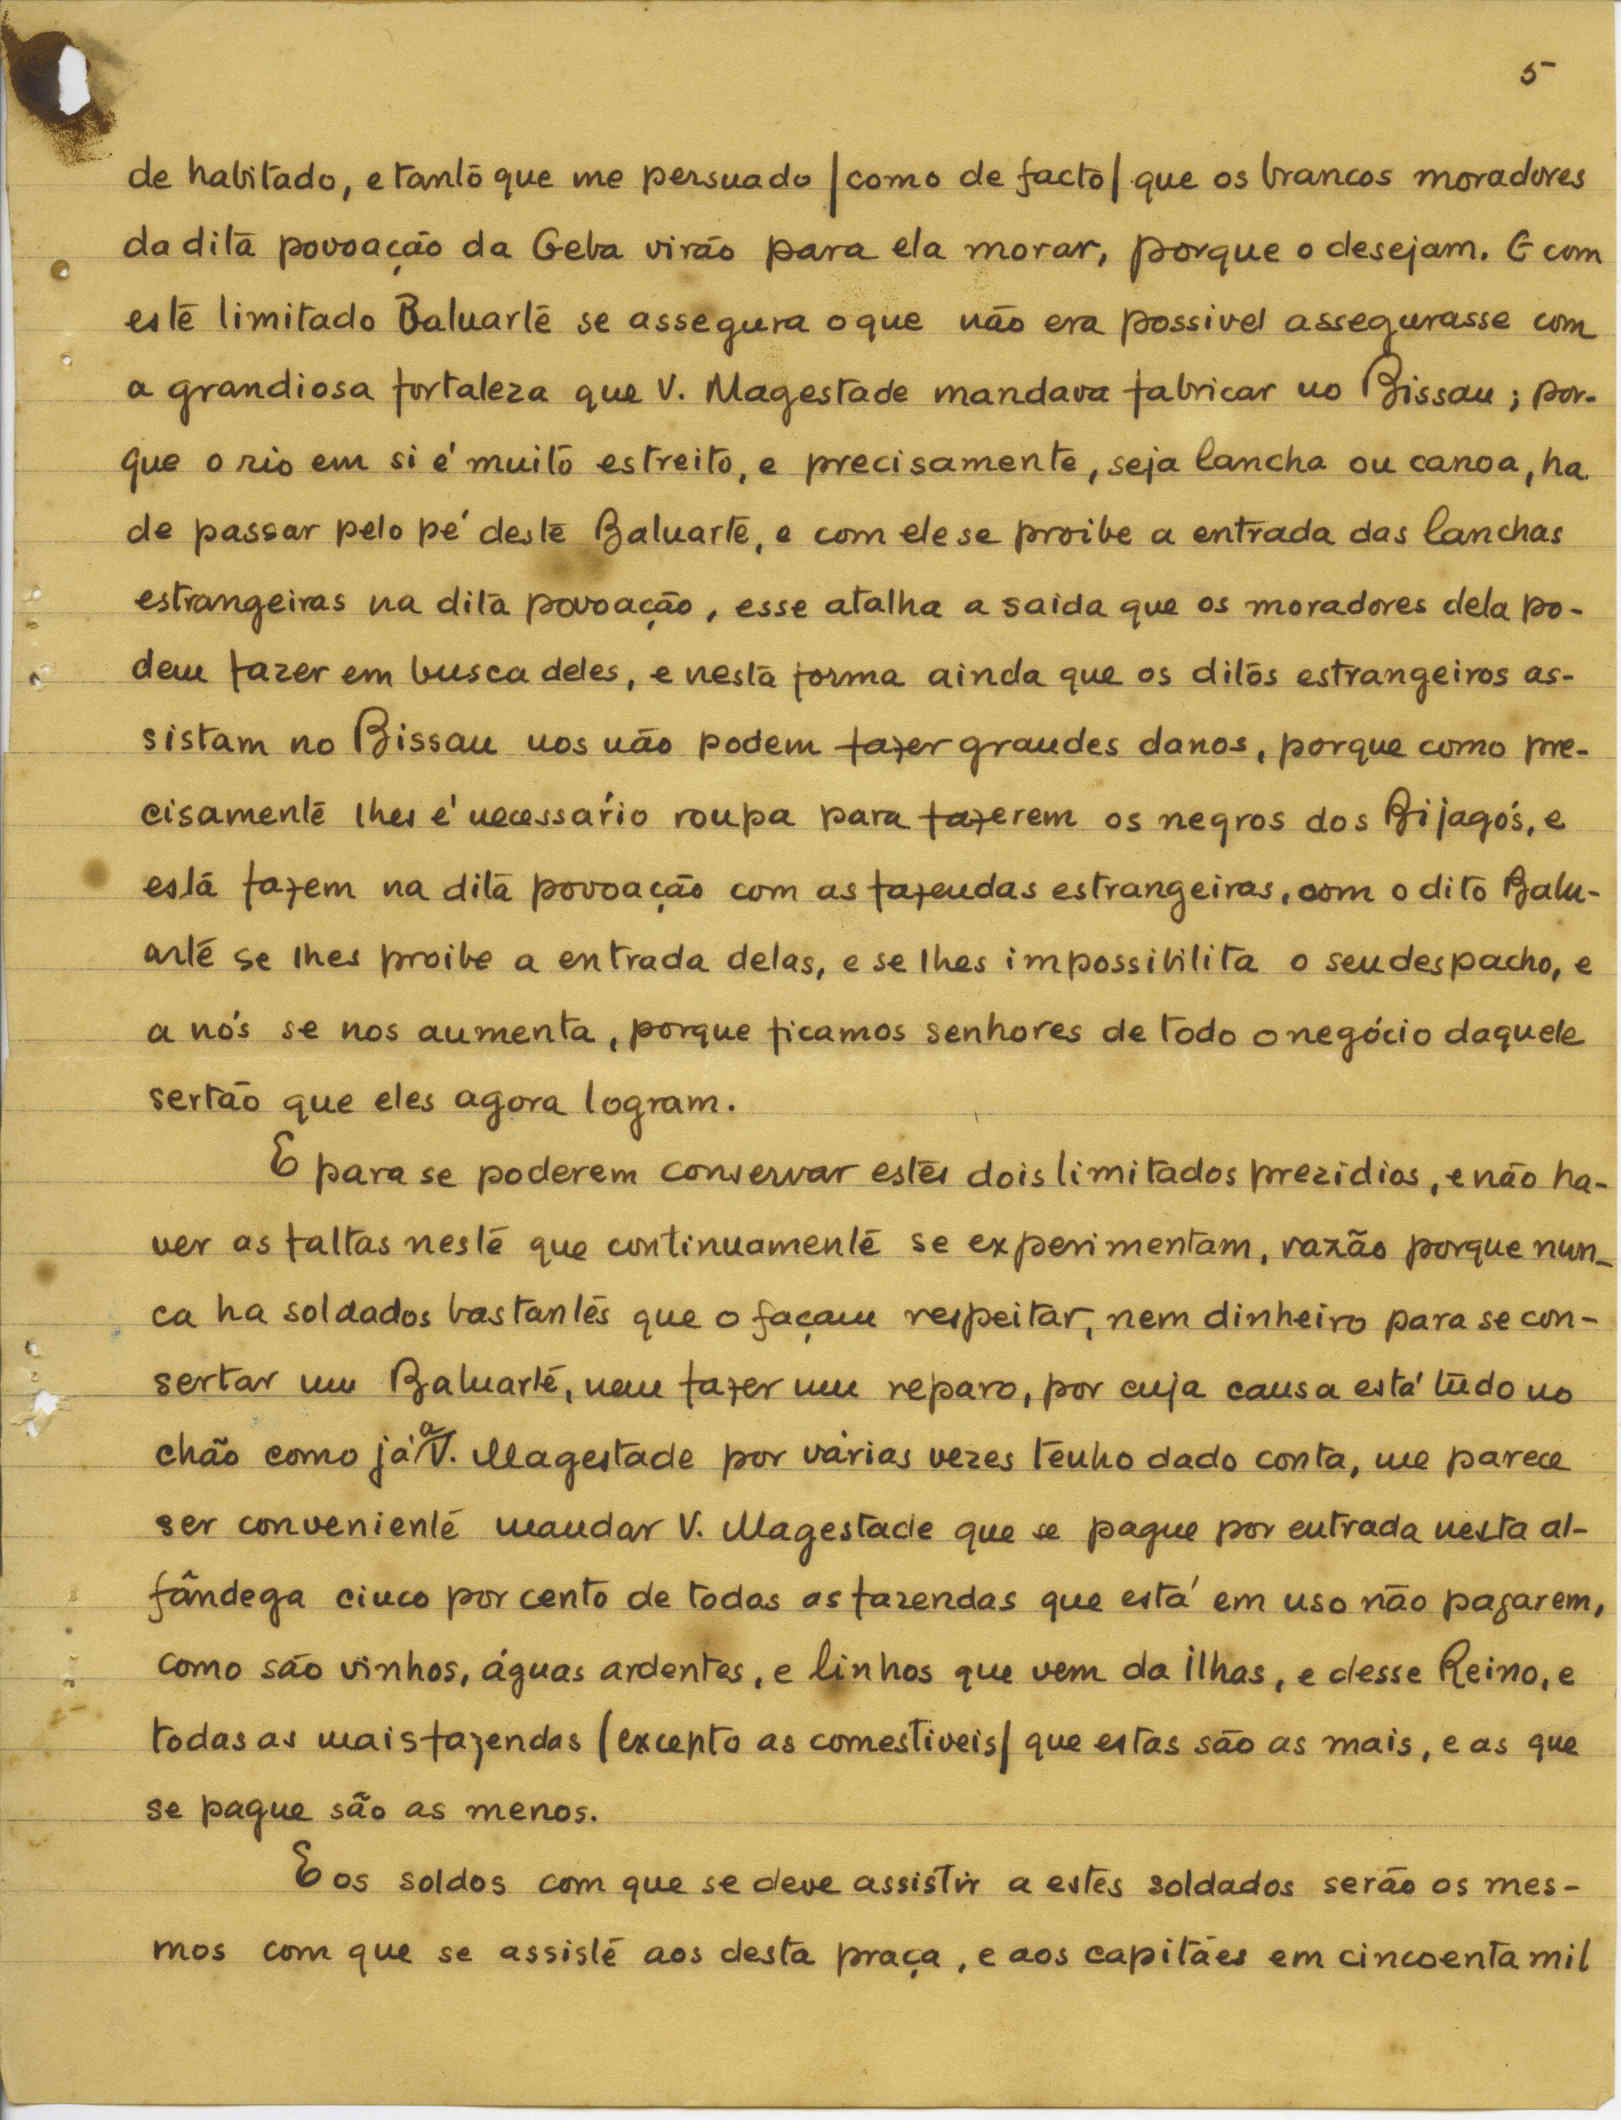 5
de habitado, e tanto que me persuado |como de facto| que os brancos moradores
da dita povoação da Geba virão para ela morar, porque o desejam. E com
este limitado Baluarte se assegura o que não era possivel assegurasse com
a grandiosa fortaleza que V. Magestade mandava fabricar no Bissau; por-
que o rio em si é muito estreito, e precisamente, seja lancha ou canoa, ha
de passar pelo pé deste Baluarte, e com ele se proibe a entrada das lanchas
estrangeiras na dita povoação, esse atalha a saida que os moradores dela po-
dem fazer em busca deles, e nesta forma ainda que os ditos estrangeiros as-
sistam no Bissau nos não podem fazer grandes danos, porque como pre-
cisamente lhes é necessário roupa para fazerem os negros dos Bijagós, e
esta fazem na dita povoação com as fazendas estrangeiras, com o dito Balu-
arte se lhes proibe a entrada delas, e se lhes impossibilita o seu despacho, e
a nós se nos aumenta, porque ficamos senhores de todo o negócio daquele
sertão que eles agora logram.
E para se poderem conservar estes dois limitados prezidios, e não ha-
ver as faltas neste que continuamente se experimentam, razão porque nun-
ca ha soldados bastantes que o façam respeitar, nem dinheiro para se con-
sertar um Baluarte, nem fazer um reparo, por cuja causa está tudo no
chão como já a V. Magestade por várias vezes tenho dado conta, me parece
ser conveniente mandar V. Magestade que se pague por entrada nesta al-
fândega cinco por cento de todas as fazendas que está em uso não pagarem,
como são vinhos, águas ardentes, e linhos que vem da ilhas, e desse Reino, e
todas as mais fazendas (excepto as comestiveis| que estas são as mais, e as que
se pague são as menos.
E os soldos com que se deve assistir a estes soldados serão os mes-
mos com que se assiste aos desta praça, e aos capitães em cincoenta mil